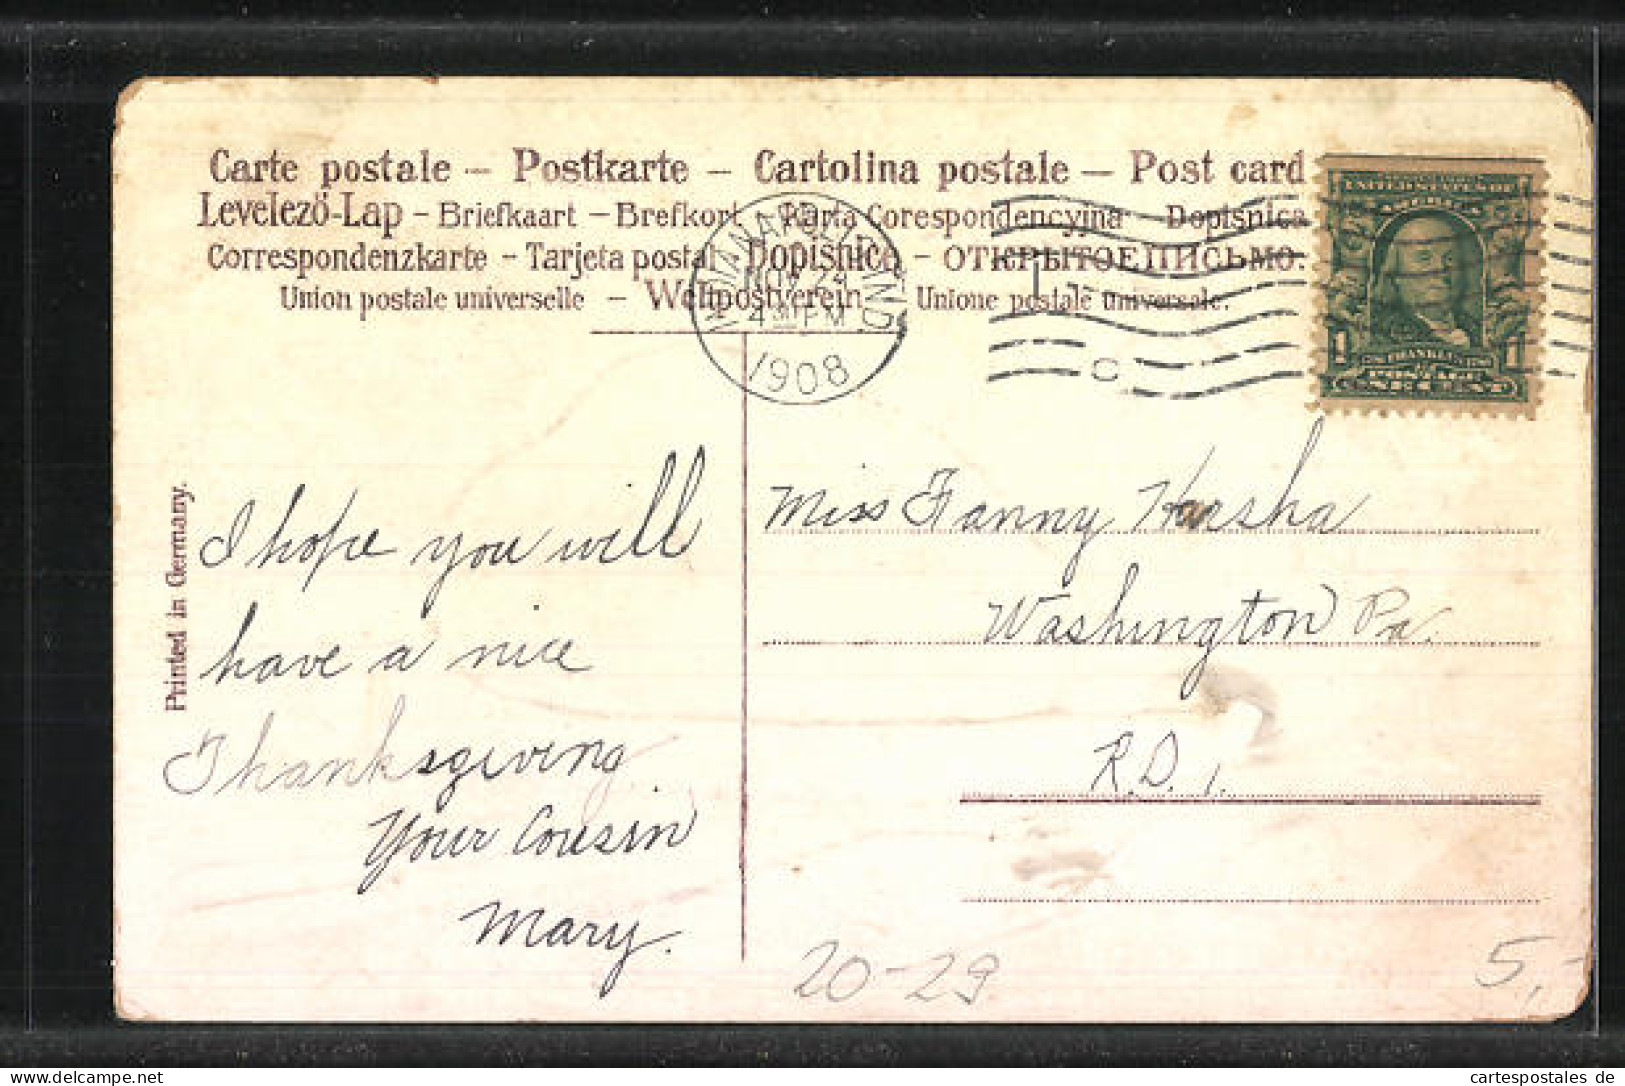 Carte postale – Postkarte – Cartolina postale – Post card
Levelező-Lap – Briefkaart – Brefkort – Karta Corespondencyjna – Dopisnica
Correspondenzkarte – Tarjeta postal – Dopisnice – ОТКРЫТОЕ ПИСЬМО.
Union postale universelle – Weltpostverein – Unione postale universale.
INDIANAPOLIS, IND
4 PM
1908
C
UNITED STATES OF
AMERICA
1 FRANKLIN 1
POSTAGE
ONE CENT
Printed in Germany.
I hope you will
have a nice
Thanksgiving
Your Cousin
Mary.
Miss Fanny Harsha
Washington Pa.
R.D. 1.
20-29
5,-
Ak-ansichtskarten.de
cartespostales de